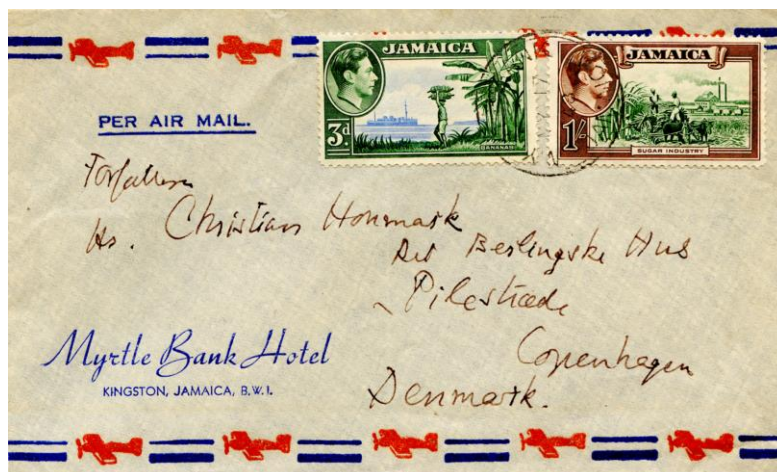 JAMAICA
3d
BANANAS
JAMAICA
1/-
SUGAR INDUSTRY
PER AIR MAIL.
Forfatteren
Hr. Christian Houmark
Det Berlingske Hus
Pilestræde
Copenhagen
Denmark.
Myrtle Bank Hotel
KINGSTON, JAMAICA, B.W.I.